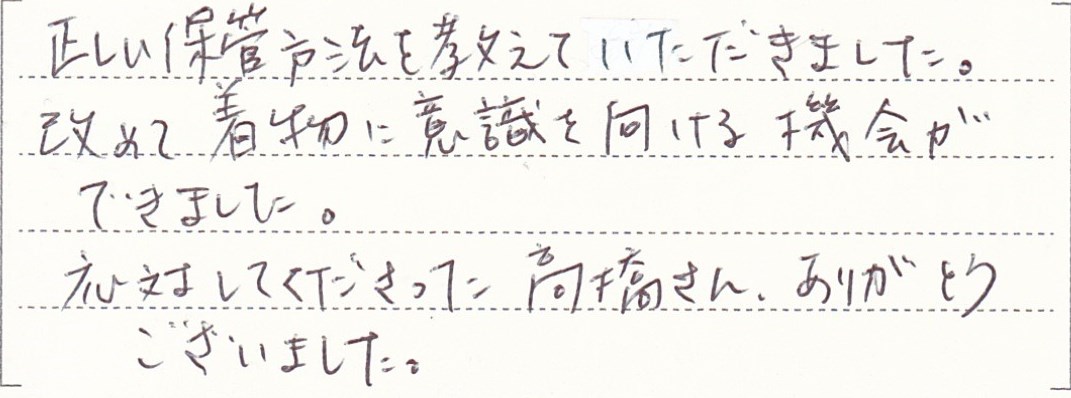 正しい保管方法を教えていただきました。
改めて着物に意識を向ける機会が
できました。
応対してくださった高橋さん、ありがとう
ございました。